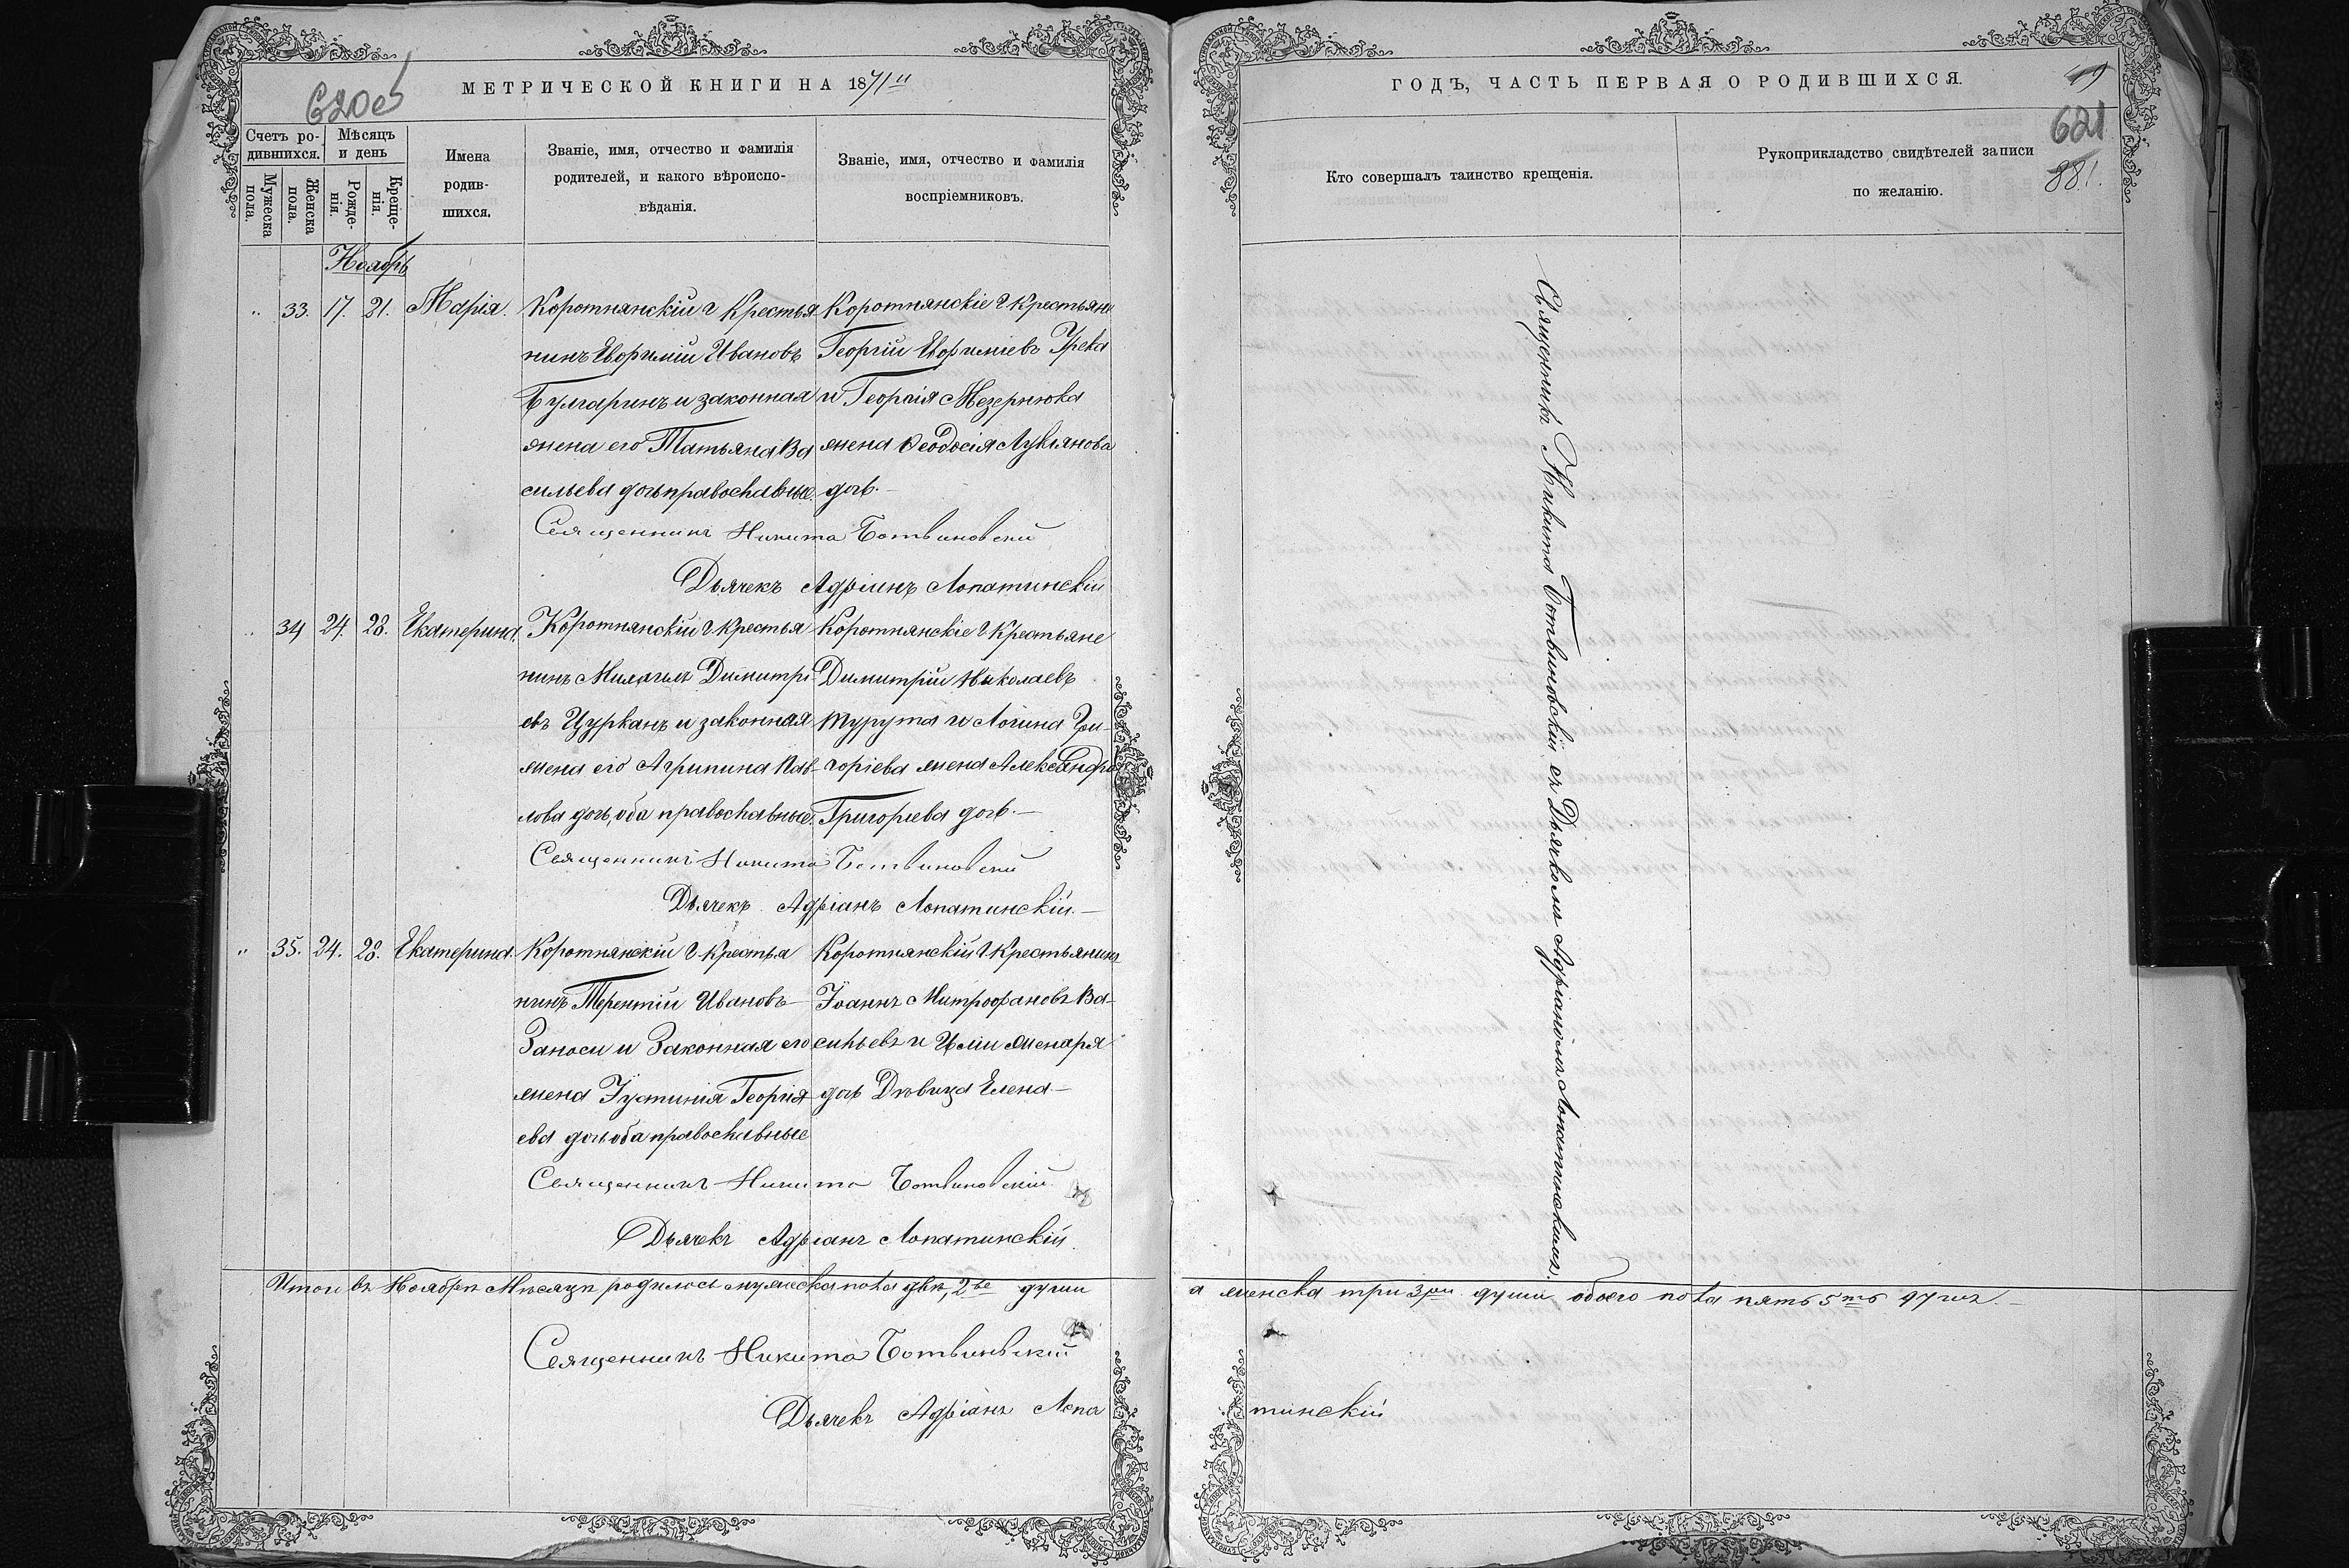 МЕТРИЧЕСКОЙ КНИГИ НА 1871
620об
Счетъ ро-
дившихся.
Мужеска
пола.
Женска
пола.
Мѣсяцъ
и день
Рожде-
нія.
Креще-
нія.
Имена
родив-
шихся.
Званіе, имя, отчество и фамилія
родителей, и какого вѣроиспо-
вѣданія.
Званіе, имя, отчество и фамилія
воспріемниковъ.
Ноябрь
„ 33. 17. 21. Марія.
Коротнянскій Крестья
нинъ Евфимій Ивановъ
Булгаринъ и законная
жена его Татьяна Ва
сильева дочь православные.
Коротнянскіе Крестьяне
Георгій Евфиміевъ Грека
и Георгія Мезернюка
жена Феодосія Лукіянова
дочь.—
Священникъ Никита Ботвиновскій
Дьячекъ Адріанъ Лопатинскій
„ 34 24. 28. Екатерина.
Коротнянскій Крестья
нинъ Михаилъ Димитрі-
евъ Цурканъ и законная
жена его Агрипина Пав-
лова дочь, оба православные.
Коротнянскіе Крестьяне
Димитрій Николаевъ
Турута и Логина Гри-
горіева жена Александра
Григоріева дочь.—
Священникъ Никита Ботвиновскій
Дьячекъ Адріанъ Лопатинскій.—
„ 35. 24. 28. Екатерина.
Коротнянскій Крестья
нинъ Терентій Ивановъ—
Заноси и Законная его
жена Іустинія Георгія
ева дочь оба православные
Коротнянскій Крестьянинъ
Іоаннъ Митрофановъ Ва-
сильевъ и
дочь Дѣвица Елена—
Священникъ Никита Ботвиновскій
Дьячекъ Адріанъ Лопатинскій.
Итого въ Ноябрѣ Мѣсяцѣ родилось мужеска пола двѣ, 2ве души
Священникъ Никита Ботвиновскій
Дьячекъ Адріанъ Лопа
ГОДЪ, ЧАСТЬ ПЕРВАЯ О РОДИВШИХСЯ.
621
881.
Кто совершалъ таинство крещенія.
Рукоприкладство свидѣтелей записи
по желанію.
Священникъ Никита Ботвиновскій съ Дьячкомъ Адріаномъ Лопатинскимъ.
а женска три 3ри души обоего пола пять 5ть душъ.—
тинскій